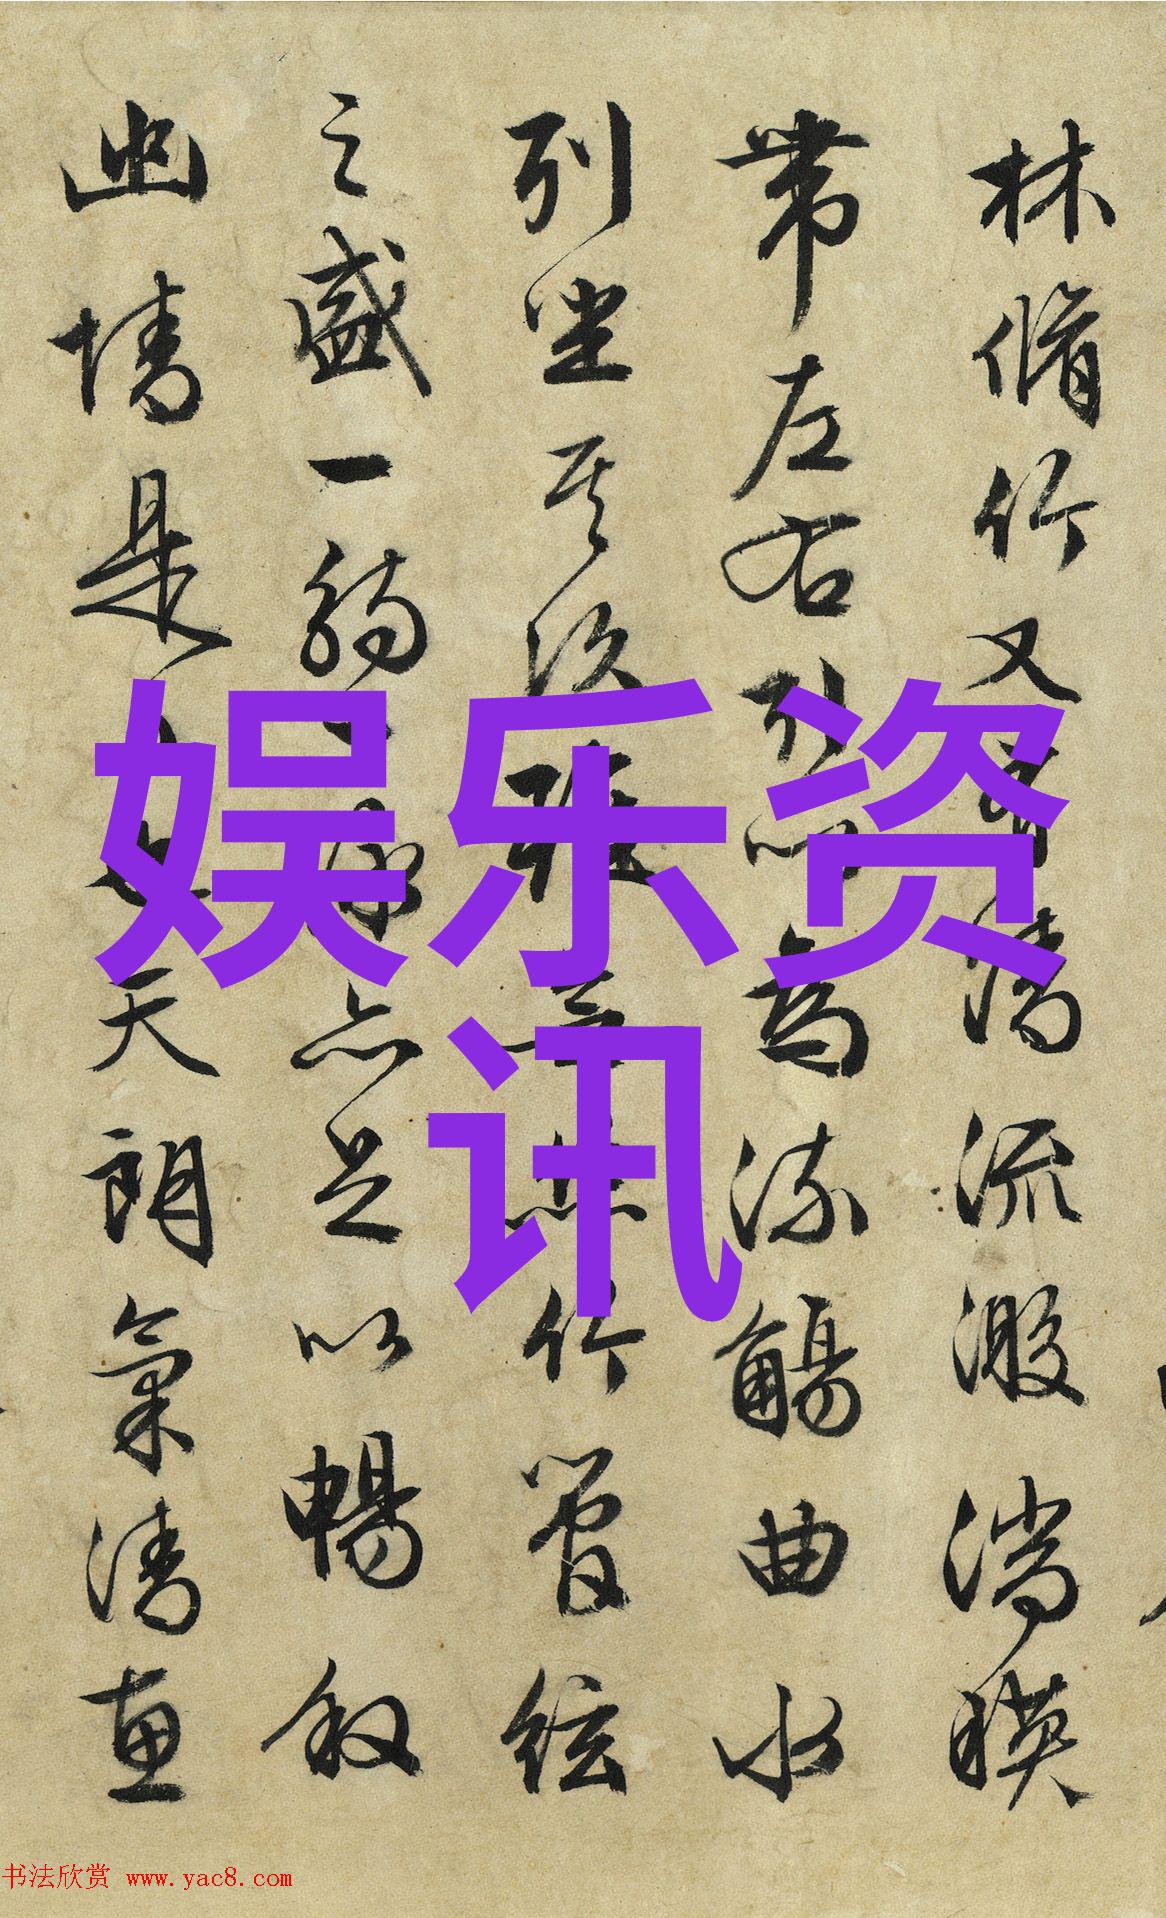 林脩竹又有清流激湍暎
帶左右引以為流觴曲水
列坐其次雖無絲竹管絃
之盛一觴一詠亦足以暢敘
幽情是也天朗氣清惠
娱乐资
讯
书法欣赏 www.yac8.com